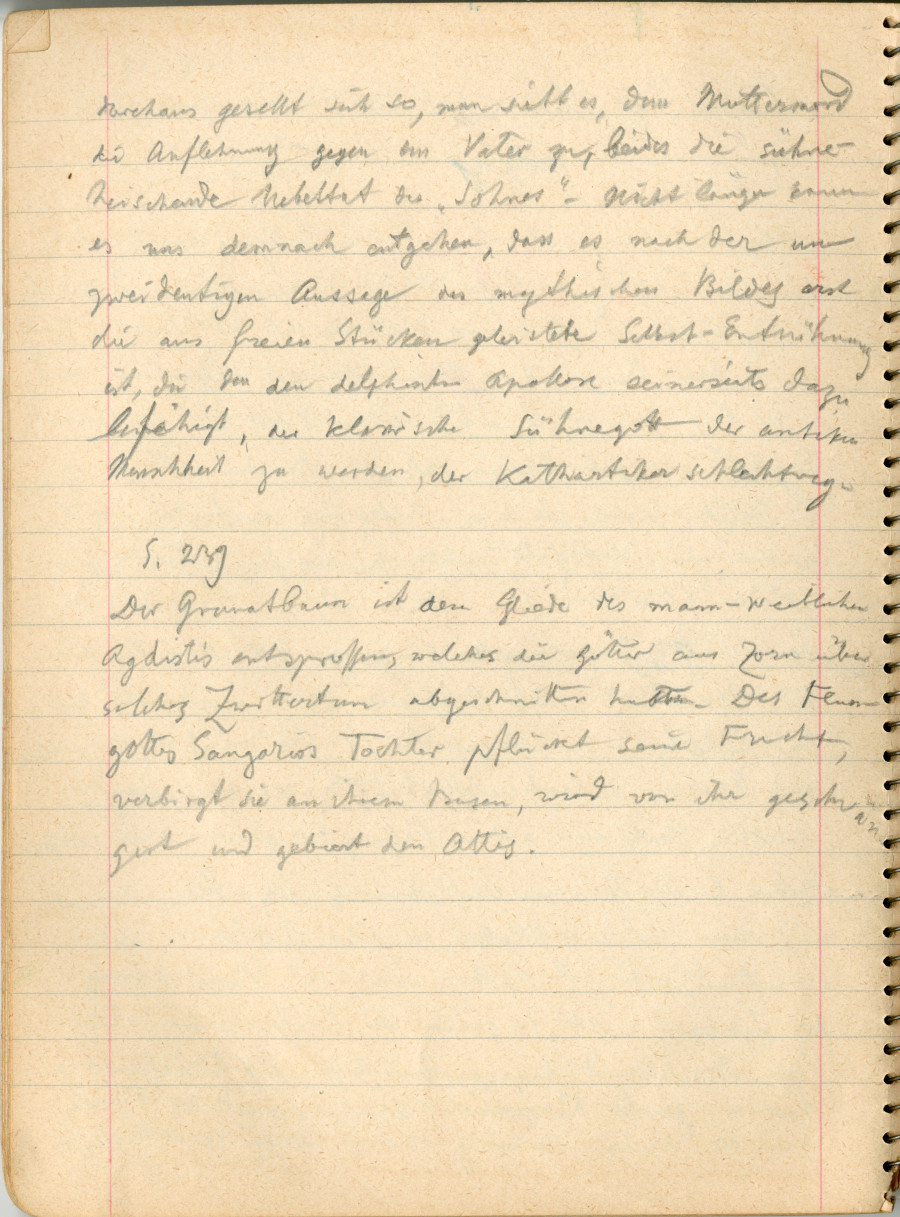 durchaus gesellt sich so, man sieht es, dem Muttermord
die Auflehnung gegen den Vater zu, beides die sühne-
heischende Uebeltat des „Sohnes“ – Nicht länger kann
es uns demnach entgehen, dass es nach der un
zweideutigen Aussage des mythischen Bildes erst
die aus freien Stücken geleistete Selbst-Entsühnung
ist, die den delphischen Apollon seinerseits dazu
befähigt, der klassische Sühnegott der antiken
Menschheit zu werden, der Kathartiker schlechtweg.
S. 239
Der Granatbaum ist dem Gliede des mann-weiblichen
Agdistis entsprossen, welches die Götter aus Zorn über
solches Zwittertum abgeschnitten hatten. Des Fluss-
gottes Sangarios Tochter pflückt seine Frucht,
verbirgt sie an ihrem Busen, wird von ihr geschwän
gert und gebiert den Attis.